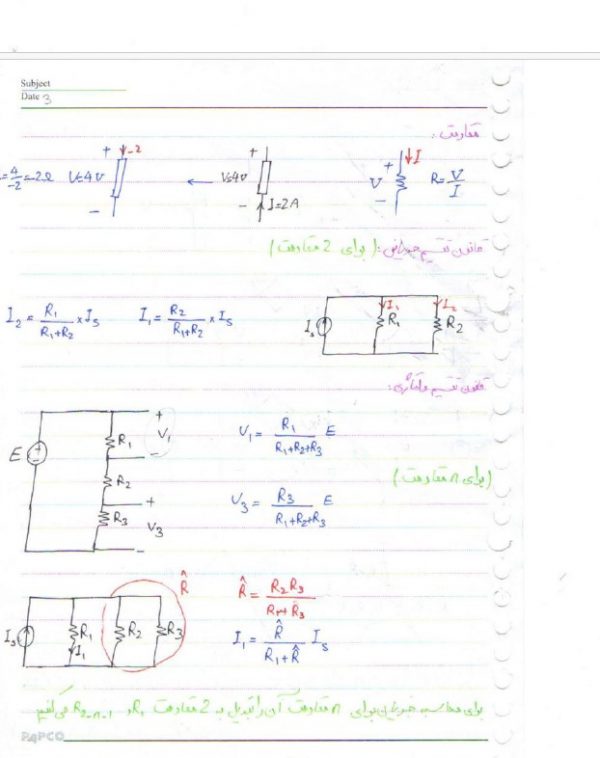 Subject
Date 3
مقاومت :
R = V/I
+ V - I
+ V=4v - I=2A
+ -2 V=4v -
= 4/-2 = -2Ω
قانون تقسیم جریان : ( برای 2 مقاومت )
Is I1 R1 I2 R2
I1 = R2/(R1+R2) × Is
I2 = R1/(R1+R2) × Is
قانون تقسیم ولتاژ :
E R1 + V1 - R2 R3 + V3 -
V1 = R1/(R1+R2+R3) E
( برای n مقاومت )
V3 = R3/(R1+R2+R3) E
Is R1 I1 R2 R3 R̂
R̂ = R2 R3/(R2+R3)
I1 = R̂/(R1+R̂) Is
برای محاسبه جریان برای n مقاومت آن را تبدیل به 2 مقاومت R1 و می کنیم
PAPCO